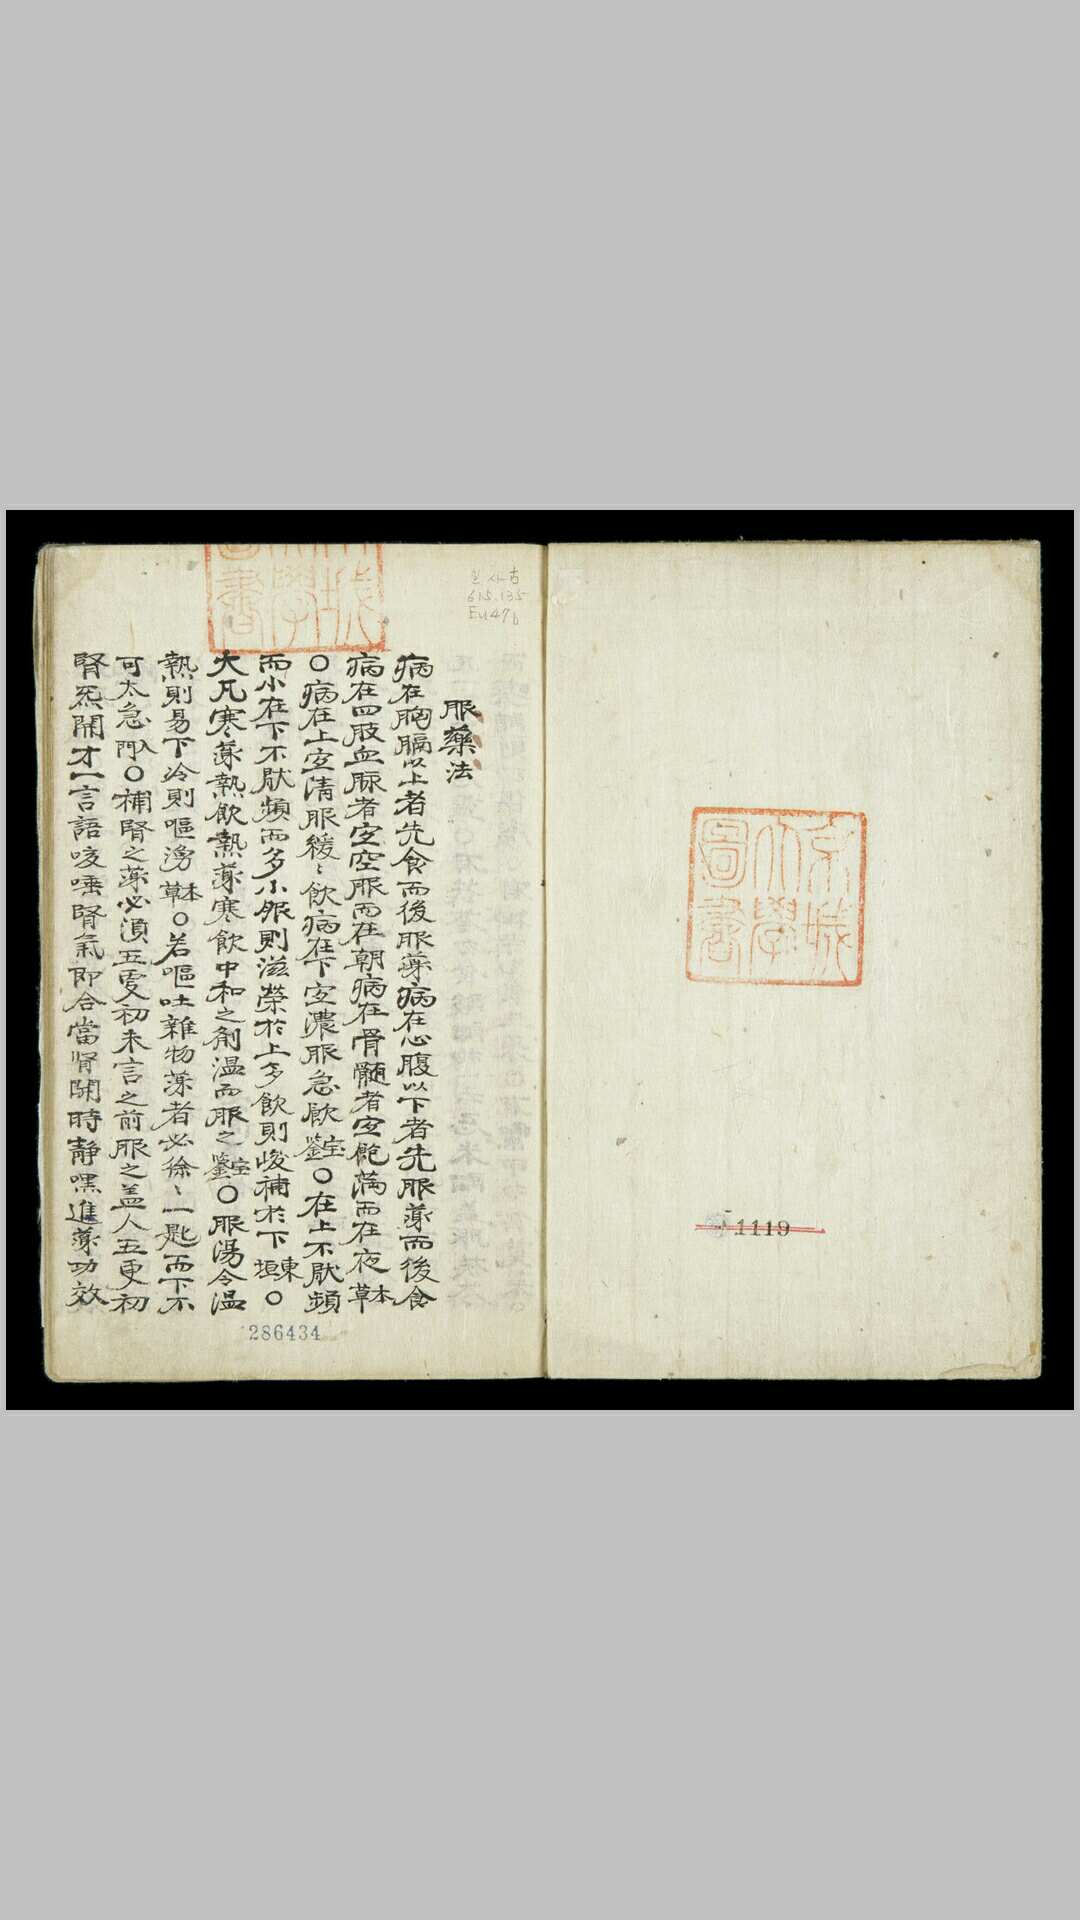 京城
大學
圖書
1119
城
學
書
고 615.135
Eu47b
服藥法
病在胸膈以上者先食而後服藥病在心腹以下者先服藥而後食
病在四肢血脉者宜空服而在朝病在骨髓者宜飽満而在夜本草
○病在上宜清服緩〻飲病在下宜濃服急飮宝鑒○在上不厭頻
而小在下不厭頻而多小服則滋榮於上多飮則峻補於下東垣○
大凡寒藥熱飮熱藥寒飮中和之劑温而服之宝鑒○服湯令温
熱則易下冷則嘔湧本草○若嘔吐雜物藥者必徐〻一匙而下不
可太急入門○補腎之藥必湏五更初未言之前服之盖人五更初
腎炁開才一言語咳唾腎氣即合當肾開時靜嘿進藥功效
286434